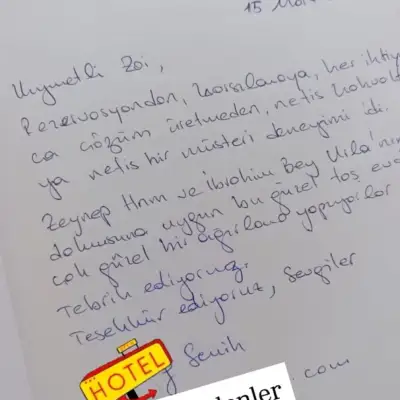 15
Kıymetli Zoi,
Rezervasyondan, karşılamaya, her ihtiy
ca çözüm üretmeden, nefis kahvalt
ya nefis bir müşteri deneyimi idi.
Zeynep Hnm ve İbrahim Bey Urla'nın
dokusuna uygun bu güzel taş evde
çok güzel bir ağırlama yapıyorlar
Tebrik ediyoruz.
Teşekkür ediyoruz, Sevgiler
Semih
HOTEL
.com